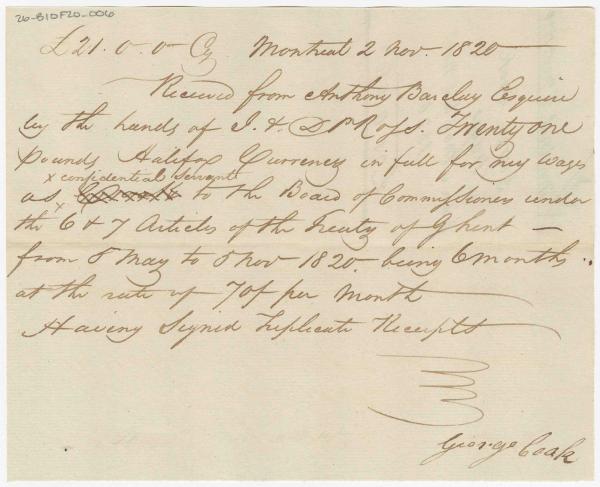 26-B10F20-006
£21.0.0 Cy Montreal 2 Nov. 1820
Received from Anthony Barclay Esquire
by the hands of J. & D. P. Ross. Twenty one
pounds Halifax Currency in full for my wages
x confidential servant
as x to the Board of Commissioners under
the 6 & 7 Articles of the Treaty of Ghent —
from 8 May to 8 Nov 1820. being 6 months
at the rate of 70/ per Month
Having Signed Triplicate Receipts
George Coak